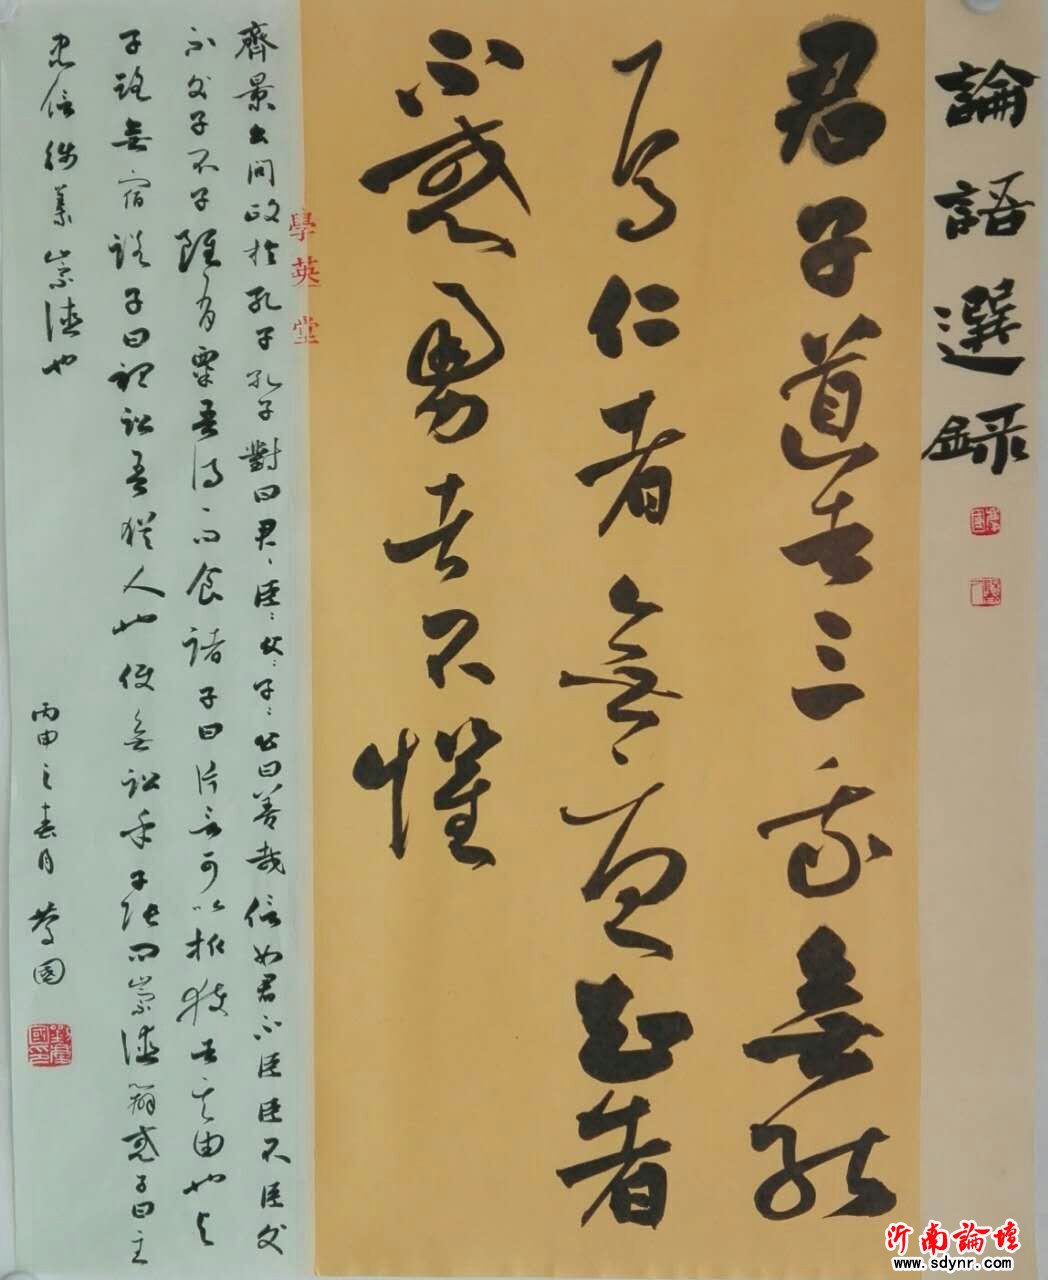 論語選録
君子道者三我無能
焉仁者無憂知者
不惑勇者不懼
學英堂
齊景公問政於孔子孔子對曰君〻臣〻父〻子〻公曰善哉信如君不臣臣不臣父
不父子不子雖有粟吾得而食諸子曰片言可以折獄者其由也與
子路無宿諾子曰聽訟吾猶人也使無訟乎子張問崇德辨惑子曰主
忠信徙義崇德也
丙申之春月國
沂南論壇
www.sdynr.com